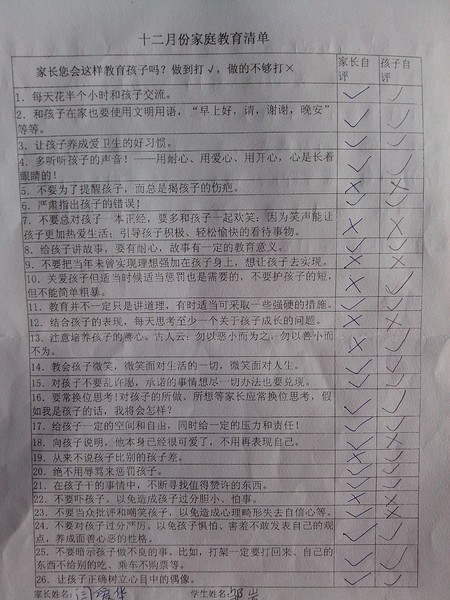 十二月份家庭教育清单
家长您会这样教育孩子吗？做到打√，做的不够打×
家长自评
孩子自评
1．每天花半个小时和孩子交流。
2．和孩子在家也要使用文明用语，“早上好，请，谢谢，晚安”
等等。
3．让孩子养成爱卫生的好习惯。
4．多听听孩子的声音！——用耐心、用爱心、用开心，心是长着
眼睛的！
5．不要为了提醒孩子，而总是揭孩子的伤疤。
6．严肃指出孩子的错误！
7．不要总对孩子一本正经，要多和孩子一起欢笑；因为笑声能让
孩子更加热爱生活；引导孩子积极、轻松愉快的看待事物。
8．给孩子讲故事，要有耐心，故事有一定的教育意义。
9．不要把当年未曾实现理想强加在孩子身上，想让孩子去实现。
10．关爱孩子但适当时候适当惩罚也是需要的，不要护孩子的短，
但不能简单粗暴。
11．教育并不一定只是讲道理，有时适当可采取一些强硬的措施。
12．结合孩子的表现，每天思考至少一个关于孩子成长的问题。
13．注意培养孩子的善心。古人云：勿以恶小而为之，勿以善小而
不为。
14．教会孩子微笑，微笑面对生活的一切，微笑面对人生。
15．对孩子不要乱许愿，承诺的事情想尽一切办法也要兑现。
16．要常换位思考！对孩子的所做、所想等家长应常换位思考，假
如我是孩子的话，我将会怎样？
17．给孩子一定的空间和自由，同时给一定的压力和责任！
18．向孩子说明，他本身已经很可爱了，不用再表现自己。
19．从来不说孩子比别的孩子差。
20．绝不用辱骂来惩罚孩子。
21．在孩子干的事情中，不断寻找值得赞许的东西。
22．不要吓孩子，以免造成孩子过分胆小、怕事。
23．不要当众批评和嘲笑孩子，以免造成心理畸形失去自信心等。
24．不要对孩子过分严厉，以免孩子惧怕、害羞不敢发表自己的观
点，养成面善心恶的性格。
25．不要暗示孩子做不良的事。比如，打架一定要打回来、自己的
东西不给别的吃、乘车不购票等。
26．让孩子正确树立心目中的偶像。
家长姓名： 学生姓名：